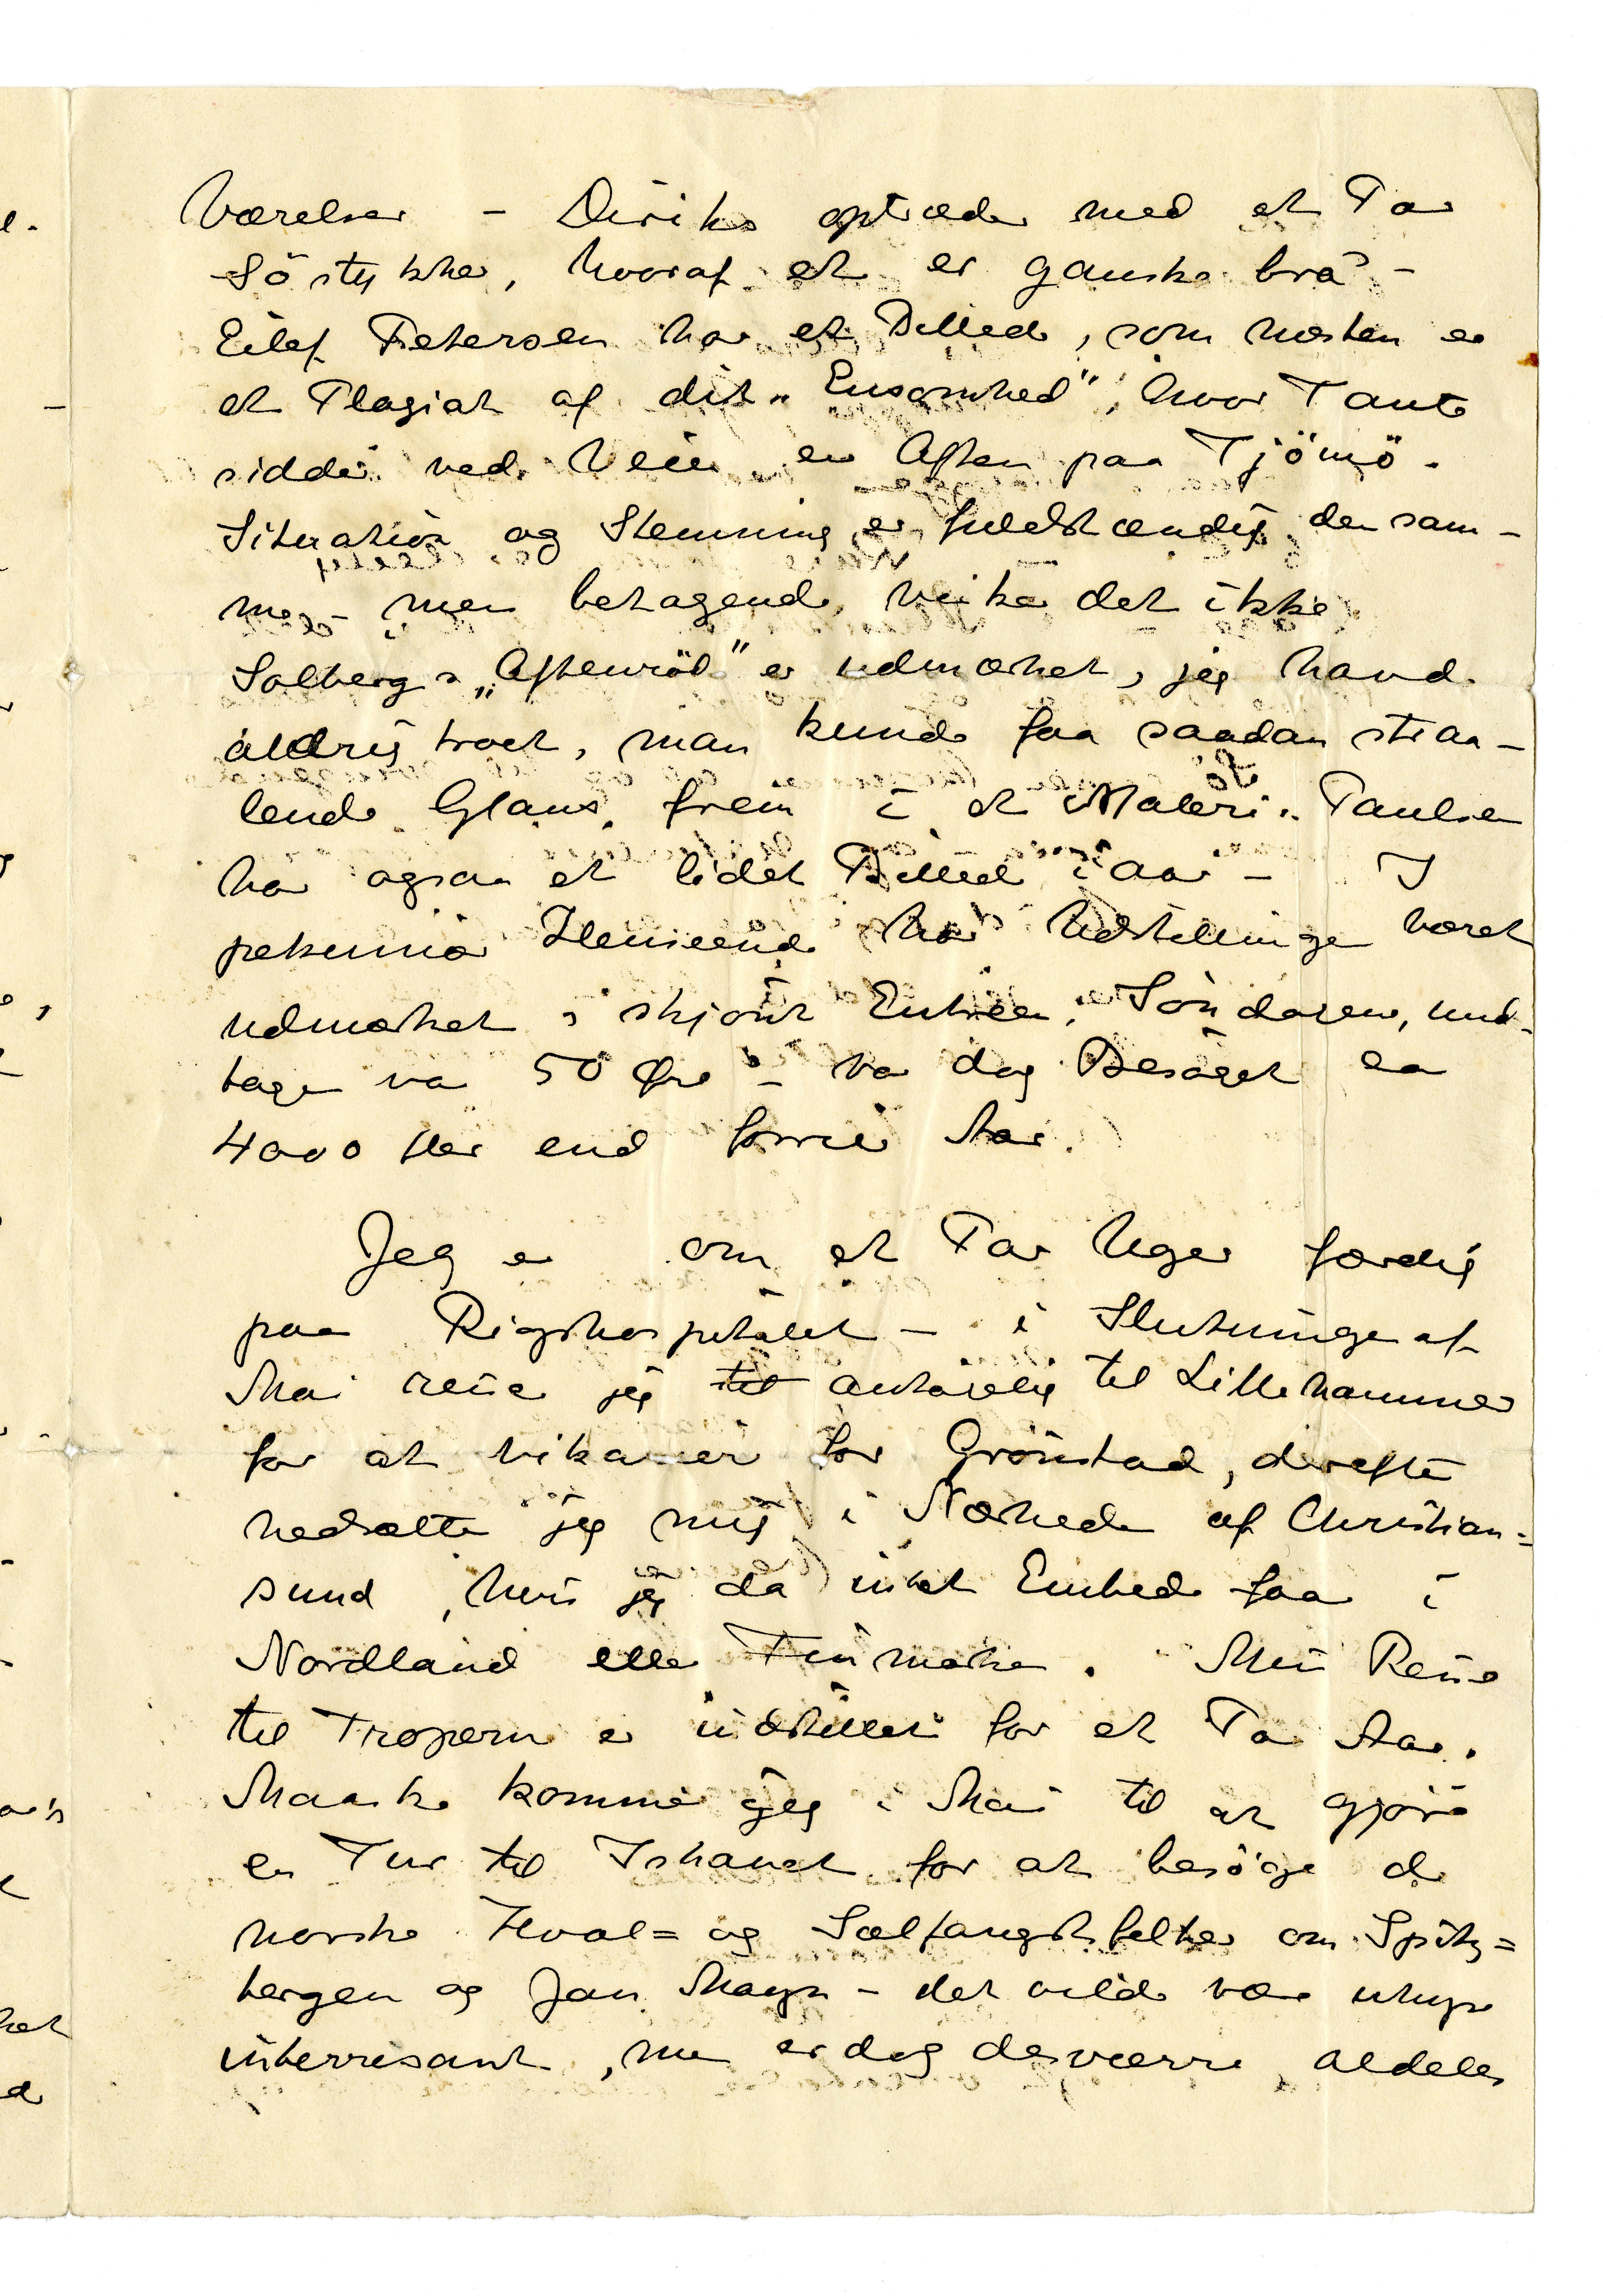 Værelser – Diriks optræder med et Par
Söstykker, hvoraf et er ganske bra –
Eilef Petersen har et Billede, som næsten er
et Plagiat af dit „Ensomhed", hvor Tante
sidder ved Veien en Aften paa Tjömö.
Situation og Stemning er fuldstændig den sam-
me – men betagende virker det ikke
Solbergs „Aftenröd" er udmærket, jeg havde
aldrig troet, man kunde faa saadan straa-
lende Glans frem i et Maleri. Paulsen
har ogsaa et lidet Billed iaar – I
pekuniær Henseende har Udstillingen været
udmærket; skjönt Entreen, Söndagen und-
tagen var 50 Øre – var dog Besöget ca
4000 fler end forrige Aar.
Jeg er om et Par Uger færdig
paa Rigshospitalet – i Slutningen af
Mai reiser jeg til antagelig til Lillehammer
for at vikariere for Grönstad, derefter
nedsætter jeg mig i Nærheden af Christian=
sund, hvis jeg da intet Embede faar i
Nordland eller Finmarken. Min Reise
til Troperne er indstillet for et Par Aar.
Maaske kommer jeg i Mai til at gjöre
en Tur til Ishavet for at besöge de
norske Hval= og Sælfangstfelter om Spitz=
bergen og Jan Mayn – det vilde være uhyre
interresant, men er dog desværre aldeles